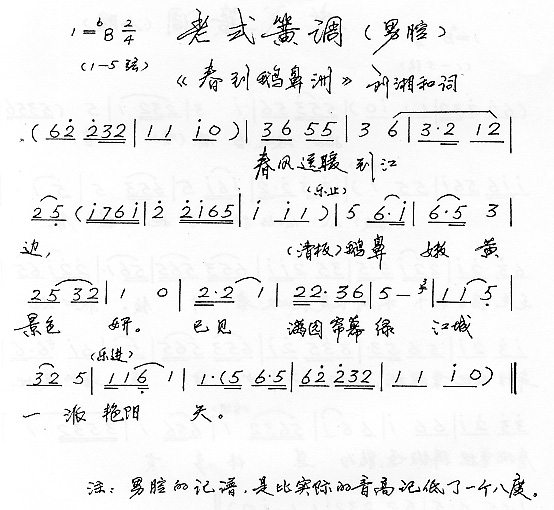 1=♭B 2/4 老式簧调（男腔）
（1-5弦）
《春到鹅鼻洲》 刘湘和词
(6 2̇ 2̇32 | 1 1 i 0) | 3 6 5 5 | 3 6 | 3·2 1 2 |
春风送暖到江
(乐止)
2 5 (i 7 6 i | 2̇ 2̇ i 6 5 | i i 1) | 5 6·i | 6·5 3 |
边， (清板) 鹅鼻 嫩 黄
2 5 3 2 | 1 0 | 2·2 1 | 2 2·3 6 | 5 - | 1 1 5 |
景色 妍。 已见 满园 帘幕 绿 江城
(乐进)
3 2 5 | 1 1 6 1 | 1·(5 6·5 | 6 2̇ 2̇32 | 1 1 i 0) ‖
一 派 艳阳 天。
注：男腔的记谱，是比实际的音高记低了一个八度。